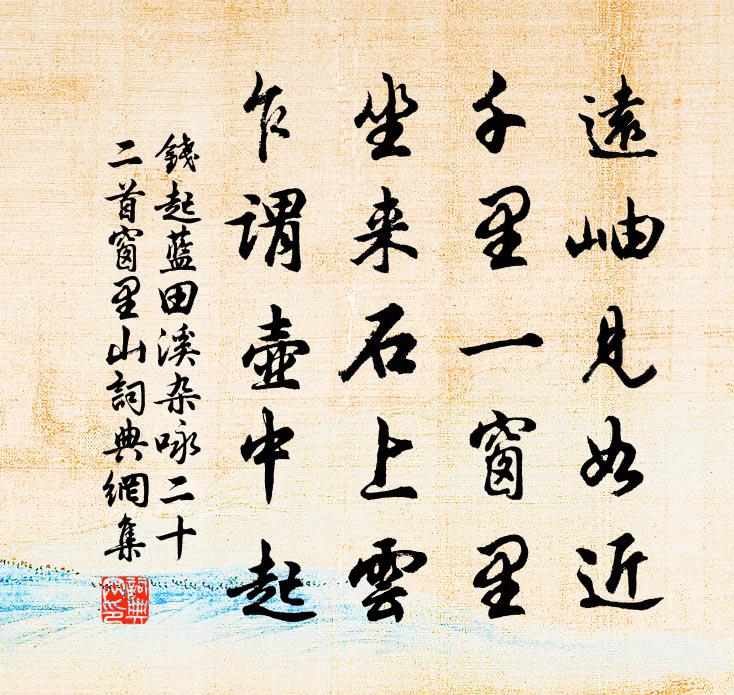 遠岫見如近
千里一窗里
坐来石上雲
乍谓壺中起
錢起蓝田溪杂咏二十
二首窗里山詞典網集